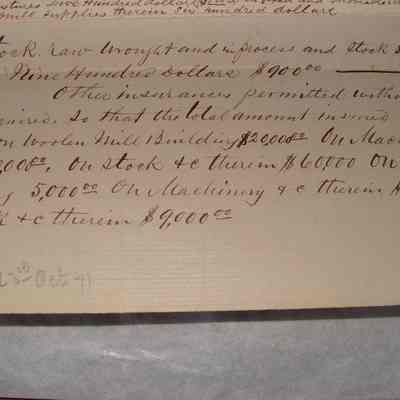 Five Hundred dollars
mill supplies therein Six hundred dollars
Stock. raw wrought and in process and stock
Nine Hundred Dollars $900.00
Other insurances permitted without
required. so that the total amount insured
on Woolen Mill Building $20,000.00 On Mach
,000.00. On stock &c therein $60000 On
5,000.00 On Machinery &c therein
&c therein $9,000.00